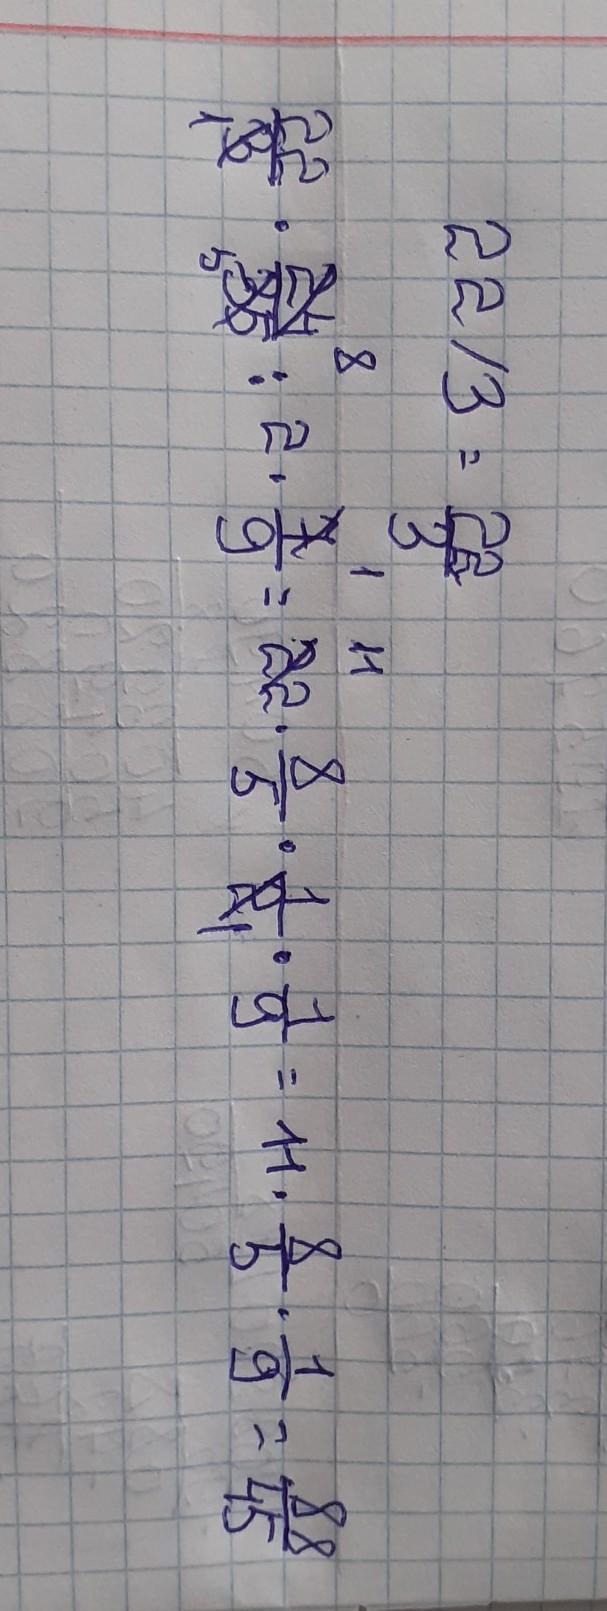 22/3 = 22/3
22/3 · 24/35 : 2 · 7/9 = 22 · 8/5 · 1/2 · 1/9 = 11 · 8/5 · 1/9 = 88/45